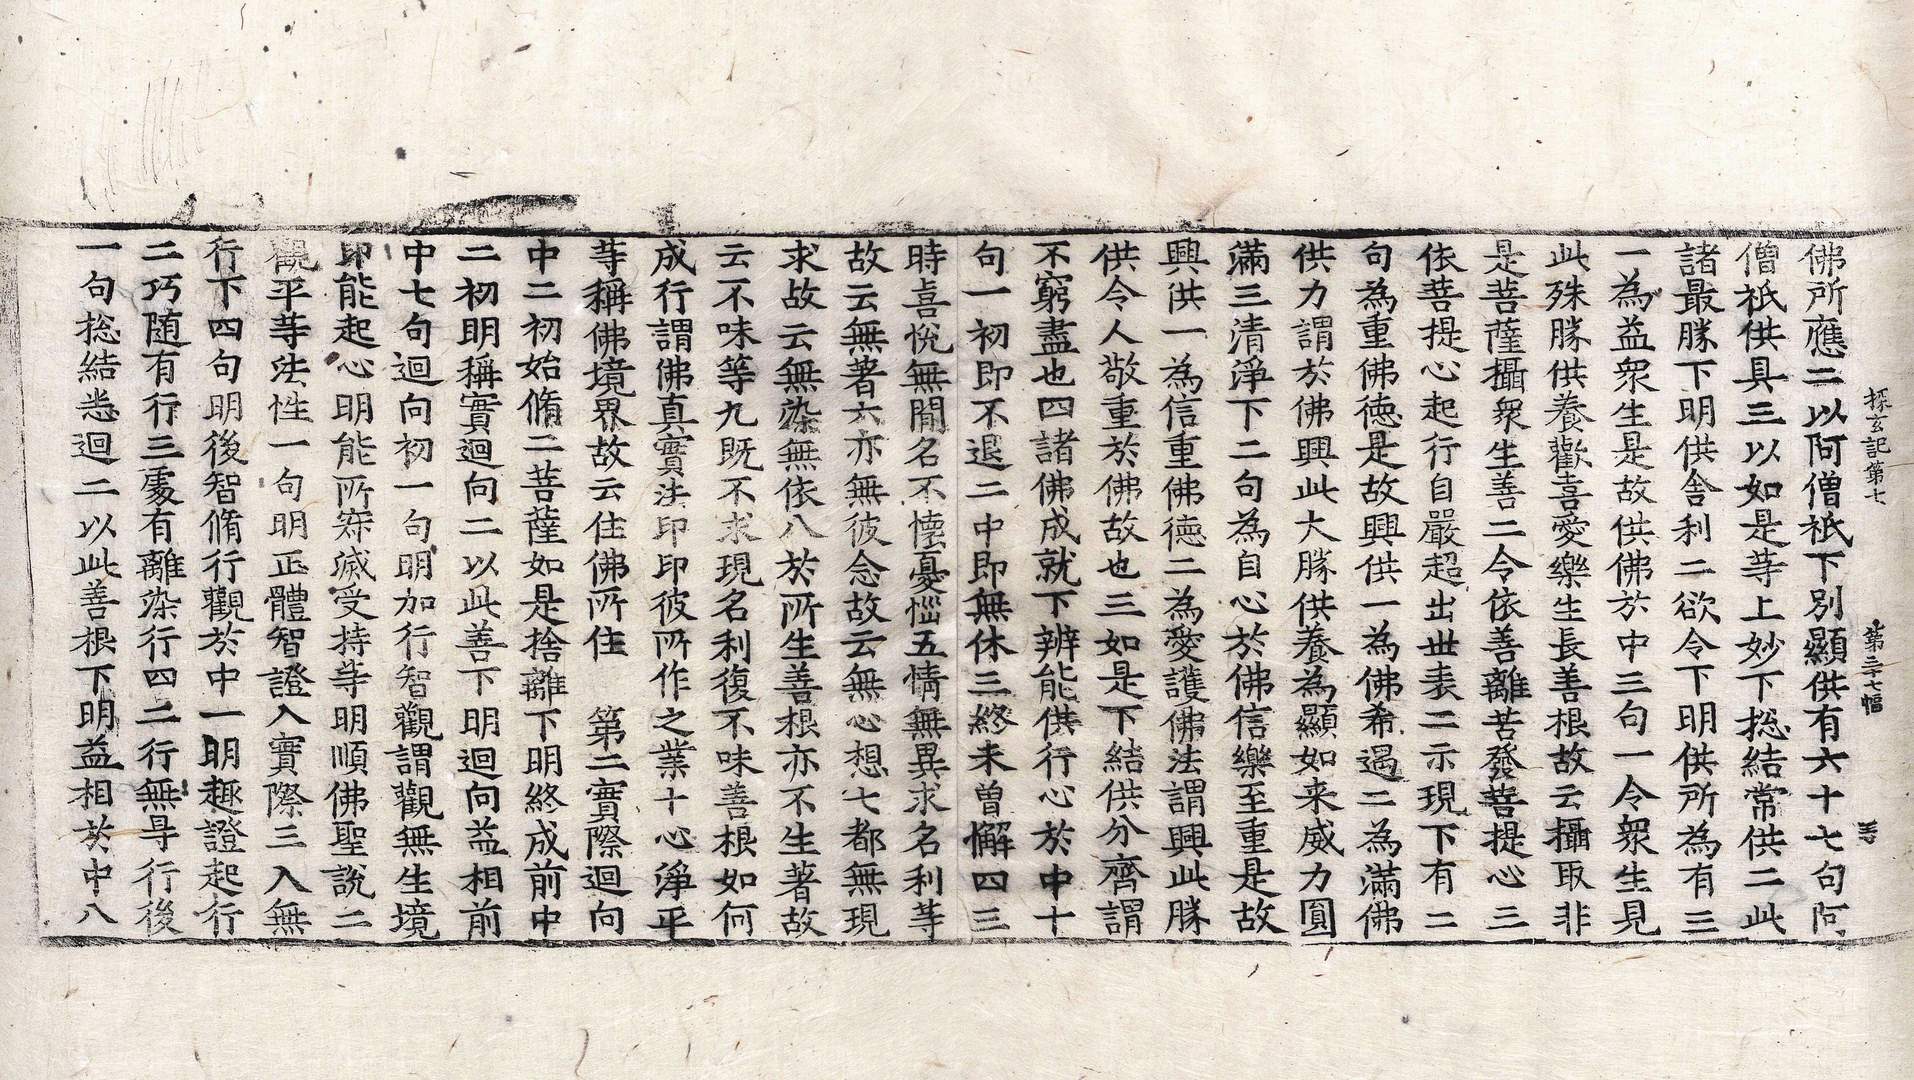 探玄記第七　第二十七幅　寺
佛所應二以阿僧祇下別顯供有六十七句阿
僧祇供具三以如是等上妙下捴結常供二此
諸最勝下明供舎利二欲令下明供所為有三
一為益衆生是故供佛於中三句一令衆生見
此殊勝供養歡喜愛樂生長善根故云攝取非
是菩薩攝衆生善二令依善離苦發菩提心三
依菩提心起行自嚴超出世表二示現下有二
句為重佛徳是故興供一為佛希遇二為滿佛
供力謂於佛興此大勝供養為顯如来威力圓
滿三清淨下二句為自心於佛信樂至重是故
興供一為信重佛德二為愛護佛法謂興此勝
供令人敬重於佛故也三如是下結供分齊謂
不窮盡也四諸佛成就下辨能供行心於中十
句一初即不退二中即無休三終未曾懈四三
時喜悅無間名不懷憂惱五情無異求名利等
故云無著六亦無彼念故云無心想七都無現
求故云無染無依八於所生善根亦不生著故
云不味等九既不求現名利復不味善根如何
成行謂佛真實法印印彼所作之業十心淨平
等稱佛境界故云住佛所住　第二實際迴向
中二初始脩二菩薩如是捨離下明終成前中
二初明稱實迴向二以此善下明迴向益相前
中七句迴向初一句明加行智觀謂觀無生境
即能起心明能所寂滅受持等明順佛聖說二
觀平等法性一句明正體智證入實際三入無
行下四句明後智脩行觀於中一明趣證起行
二巧随有行三處有離染行四二行無㝵行後
一句捴結悉迴二以此善根下明益相於中八